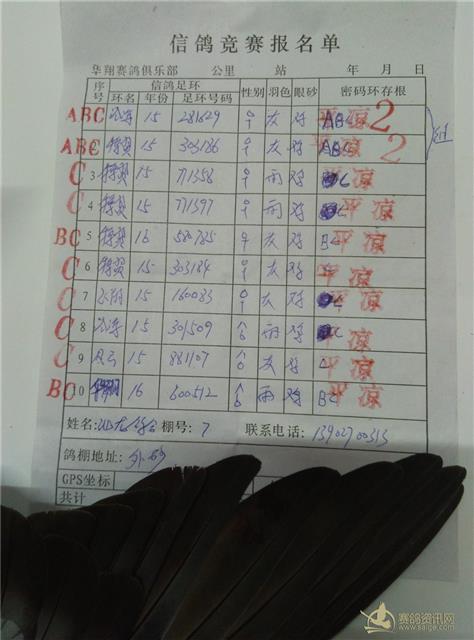 信鸽竞赛报名单
华翔赛鸽俱乐部 公里 站 年 月 日
序号 信鸽足环 性别 羽色 眼砂 密码环存根
环名 年份 足环号码
ABC 15 281629 ♀ 灰 ABC 平凉 2
ABC 特翼 15 303186 ♀ 灰 ABC 平凉 2
C 3 特翼 15 711358 ♀ 雨 C 平凉
C 4 特翼 15 771597 ♀ 雨 C 平凉
BC 5 特翼 16 ♀ 灰 BC 平凉
C 6 特翼 15 303184 ♀ 灰 C 平凉
C 7 15 160083 ♀ 灰 C 平凉
C 8 15 301509 ♂ 雨 C 平凉
C 9 15 881107 ♂ 灰 C 平凉
BC 10 16 600512 ♂ 雨 BC 平凉
姓名: 棚号: 7 联系电话: 13902700313
鸽棚地址: 外砂
GPS坐标
共计
赛鸽资讯网
www.saige.com